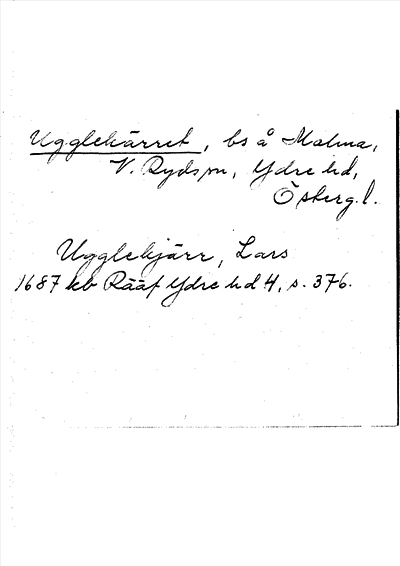 Ugglekärret, bs å Malma,
V. Ryds sn, Ydre hd,
Österg. l.
Ugglekjärr, Lars
1687 kb Rääf Ydre hd 4, s. 376.